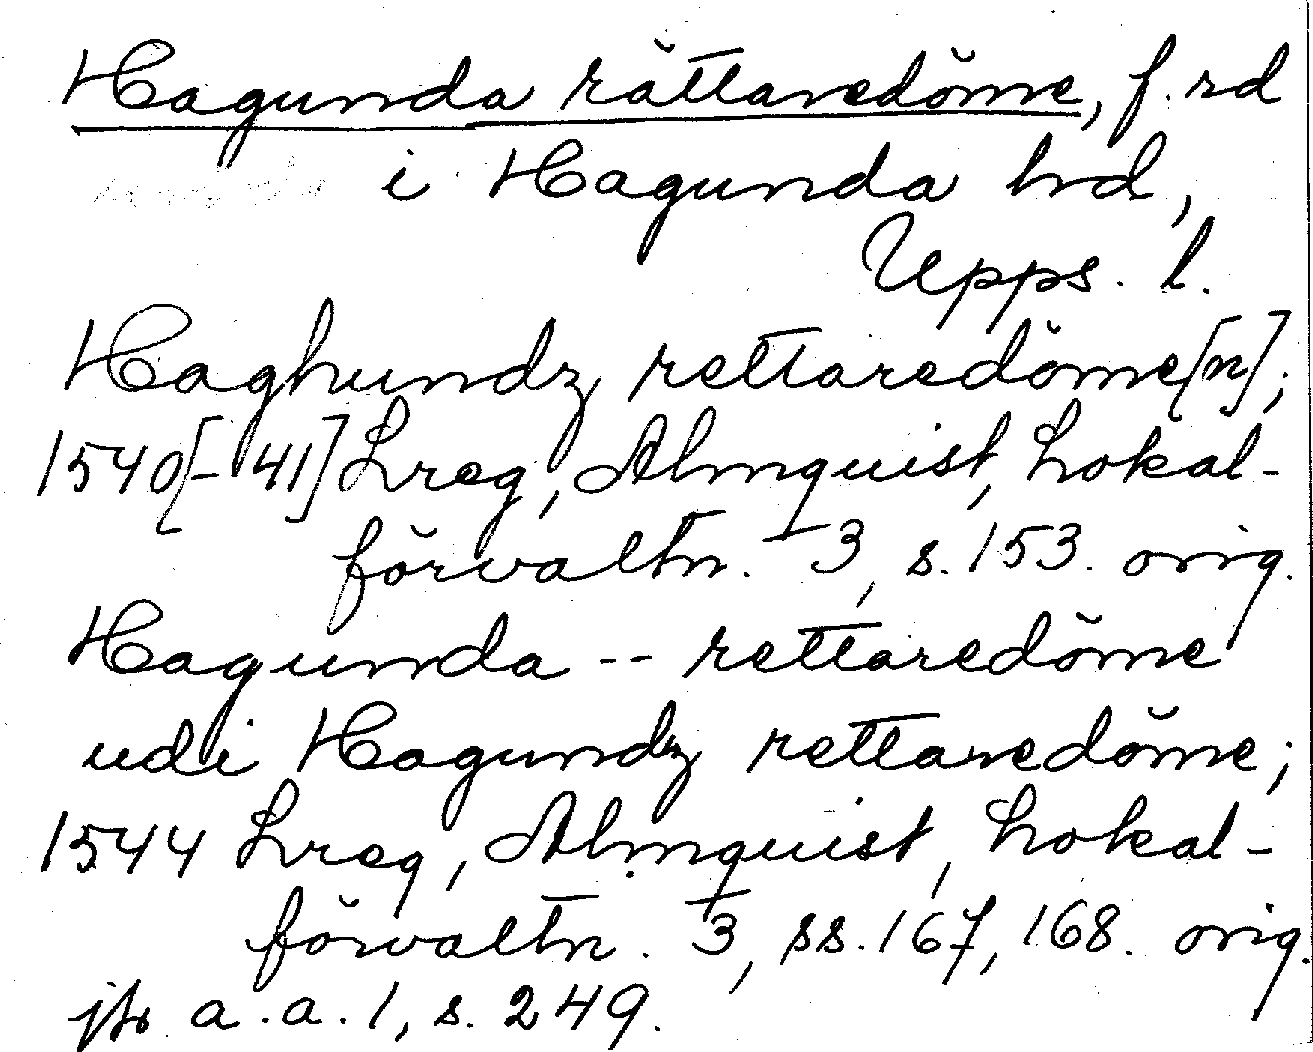 Hagunda rättaredöme, f. rd
i Hagunda hrd,
Upps. l.
Haghundz rettaredöme[n];
1540[-41] Lreg, Almquist, Lokal-
förvaltn. 3, s. 153. orig.
Hagunda -- rettaredöme
udi Hagundz rettaredöme;
1544 Lreg, Almquist, Lokal-
förvaltn. 3, ss. 167, 168. orig.
jfr a.a. 1, s. 249.